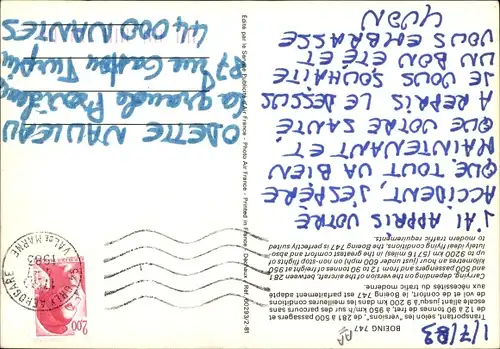 1/7/83
BOEING 747
Transporte, selon les "versions", de 281 à 500 passagers et
de 12 à 90 tonnes de fret, à 950 km/h sur des parcours sans
escale allant jusqu'à 9 200 km dans les meilleures conditions
de vol et de confort, le Boeing 747 est parfaitement adapté
aux exigences du trafic moderne.
Carrying, depending on the version of the aircraft, between 281
and 500 passengers and from 12 to 90 tonnes of freight at 950
kilometres an hour (just under 600 mph) in non-stop flights of
up to 9200 km (5716 miles) in the greatest comfort and absolu-
tely ideal flying conditions, the Boeing 747 is perfectly suited
to modern traffic requirements.
J'AI APPRIS VOTRE
ACCIDENT, J'ESPÈRE
QUE TOUT VA BIEN
MAINTENANT ET
QUE VOTRE SANTÉ
A REPRIS LE DESSUS
JE VOUS SOUHAITE
UN BON ÉTÉ ET
VOUS EMBRASSE
YVON
Édité par le Service Publicité d'Air France - Photo Air France - Printed in France Draeger. Réf. 60293/2-81
VAL DE MARNE
1983
2,00
ODETTE NAULEAU
La grande Providence
87 rue Gaston Turpin
44000 NANTES